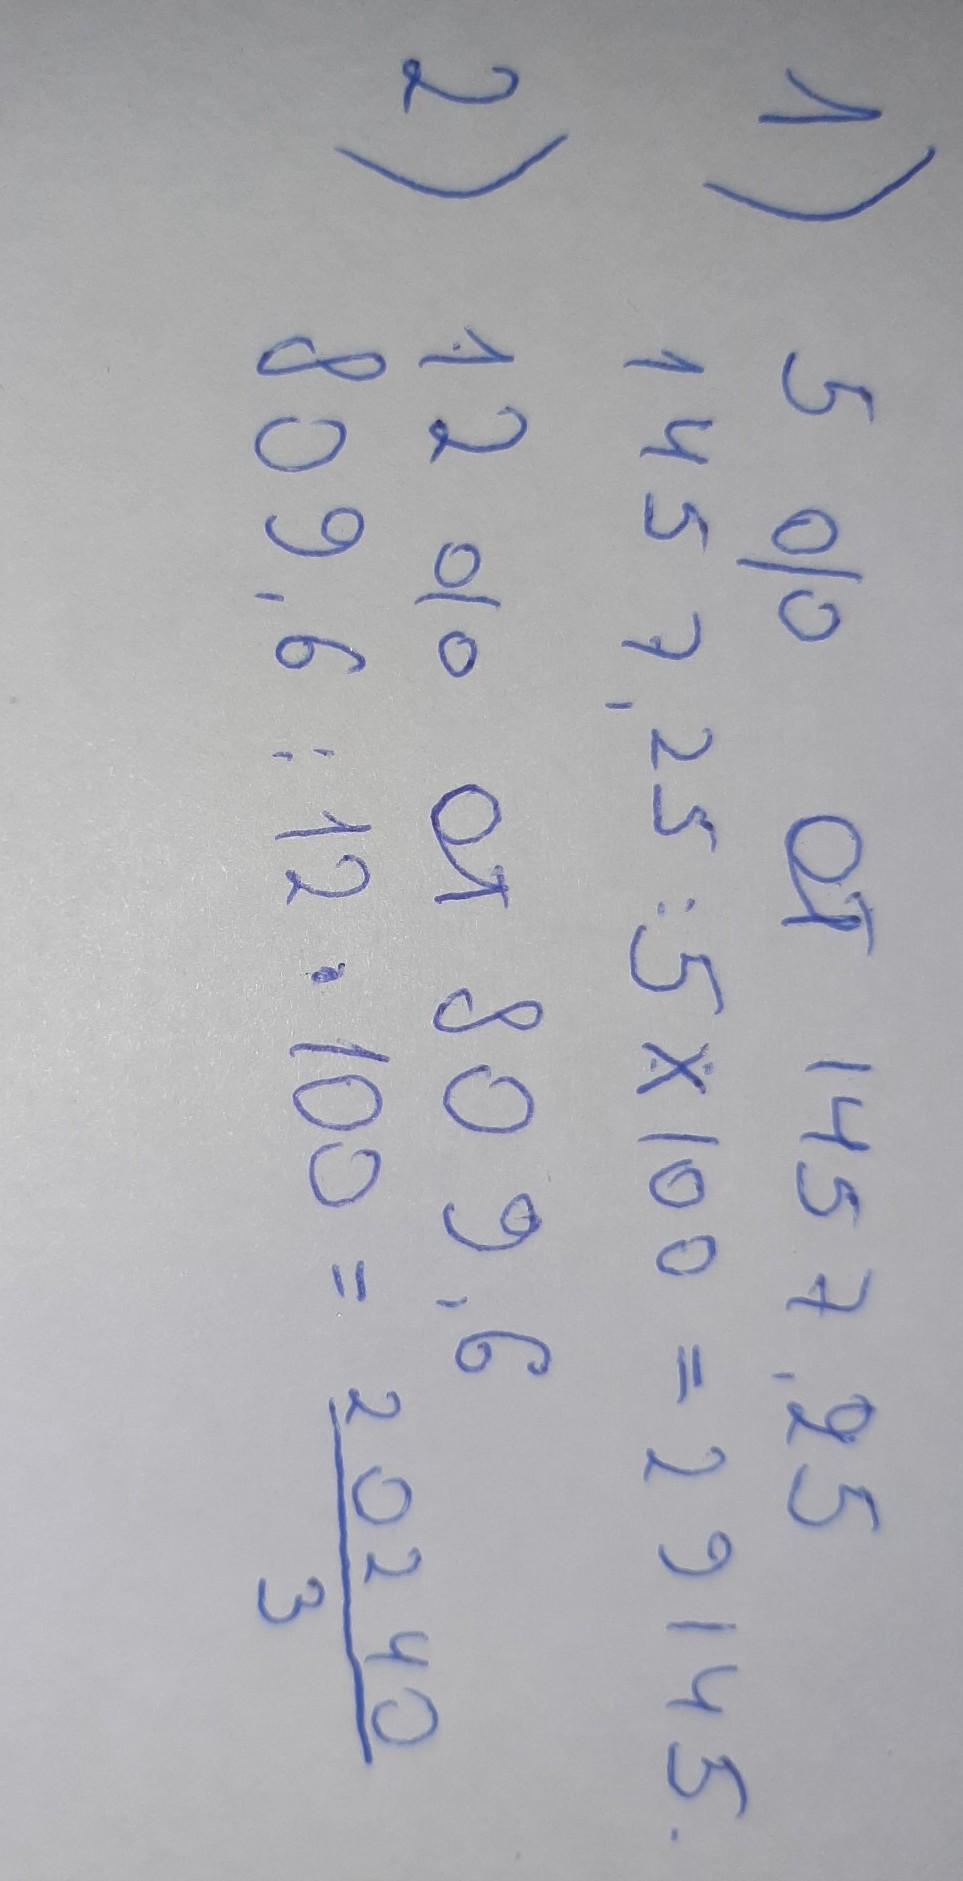 1) 5 % от 1457,25
1457,25 : 5 × 100 = 29145.
2) 12 % от 809,6
809,6 : 12 · 100 = 20240
3